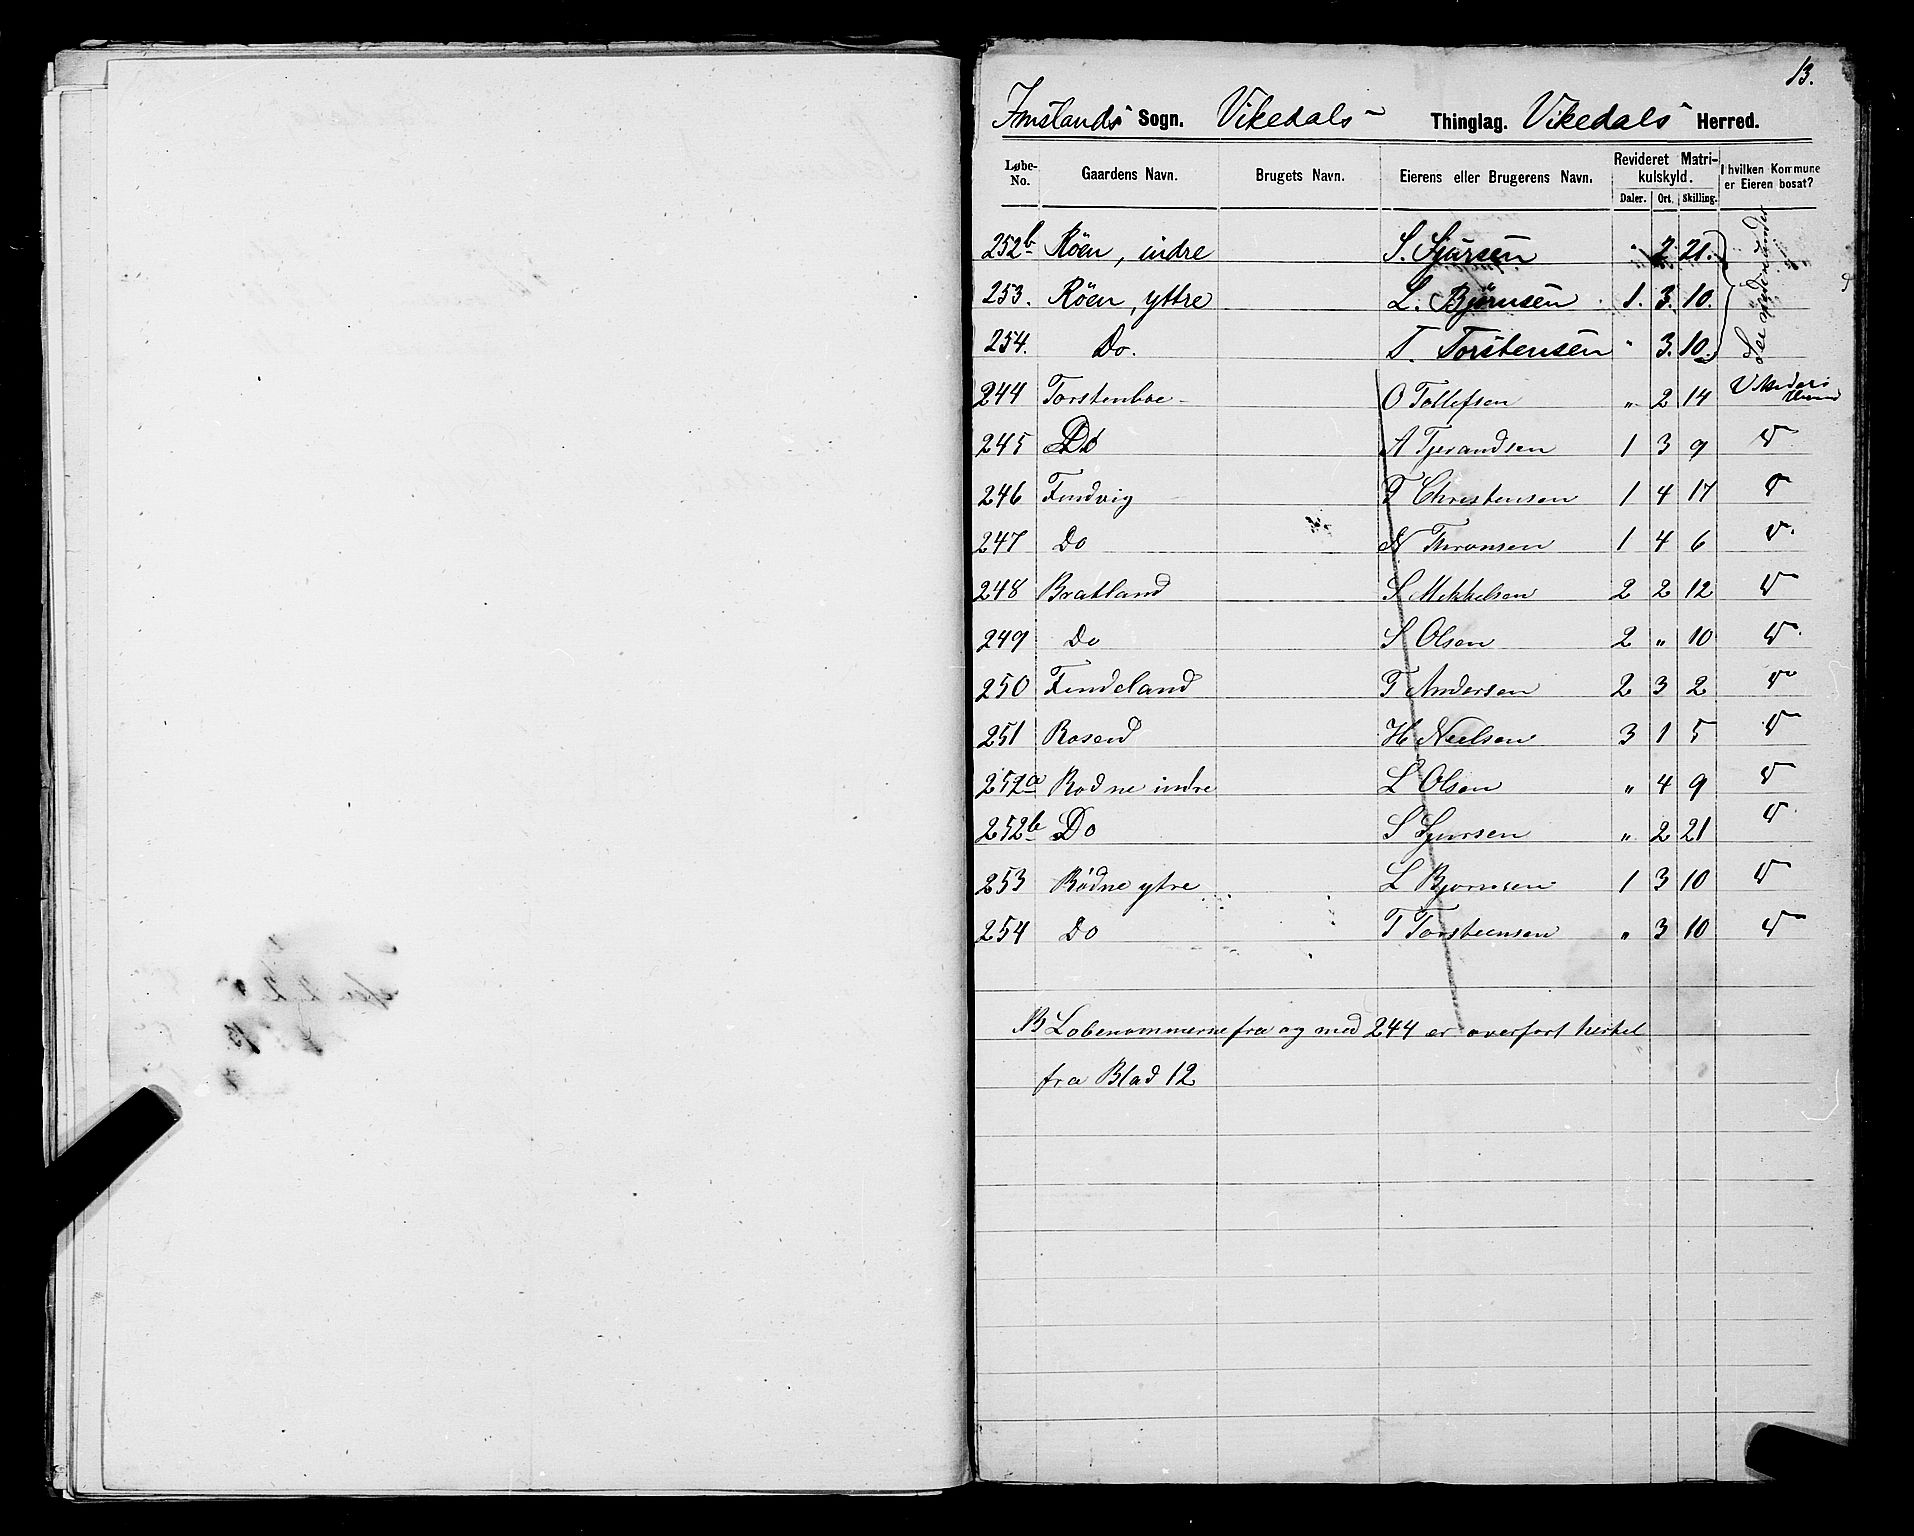 13.
Imslands Sogn. Vikedals Thinglag. Vikedals Herred.
Løbe-No. Gaardens Navn. Brugets Navn. Eierens eller Brugerens Navn. Revideret Matrikulskyld. Daler. Ort. Skilling. I hvilken Kommune er Eieren bosat?
252b Röen, indre S. Sjursen " 2. 21.
253. Röen, yttre L. Bjørnsen 1. 3. 10.
254. Do. T. Torstensen " 3. 10.
244 Torstenboe O Tollefsen " 2 14 Vikedals Herred
245 Do A Tjerandsen 1 3 9 V
246 Findvig T Christensen 1 4 17 V
247 Do N Thronsen 1 4 6 V
248 Bratland S Mikkelsen 2 2 12 V
249 Do S Olsen 2 " 10 V
250 Findeland T Andersen 2 3 2 V
251 Rosend H Neelsen 3 1 5 V
252a Rodne indre L Olsen " 4 9 V
252b Do S Sjursen " 2 21 V
253 Rödne ytre L Bjornsen 1 3 10 V
254 Do T Torsteensen " 3 10 V
NB Lobenommerne fra og med 244 er overfort hertel
fra Blad 12